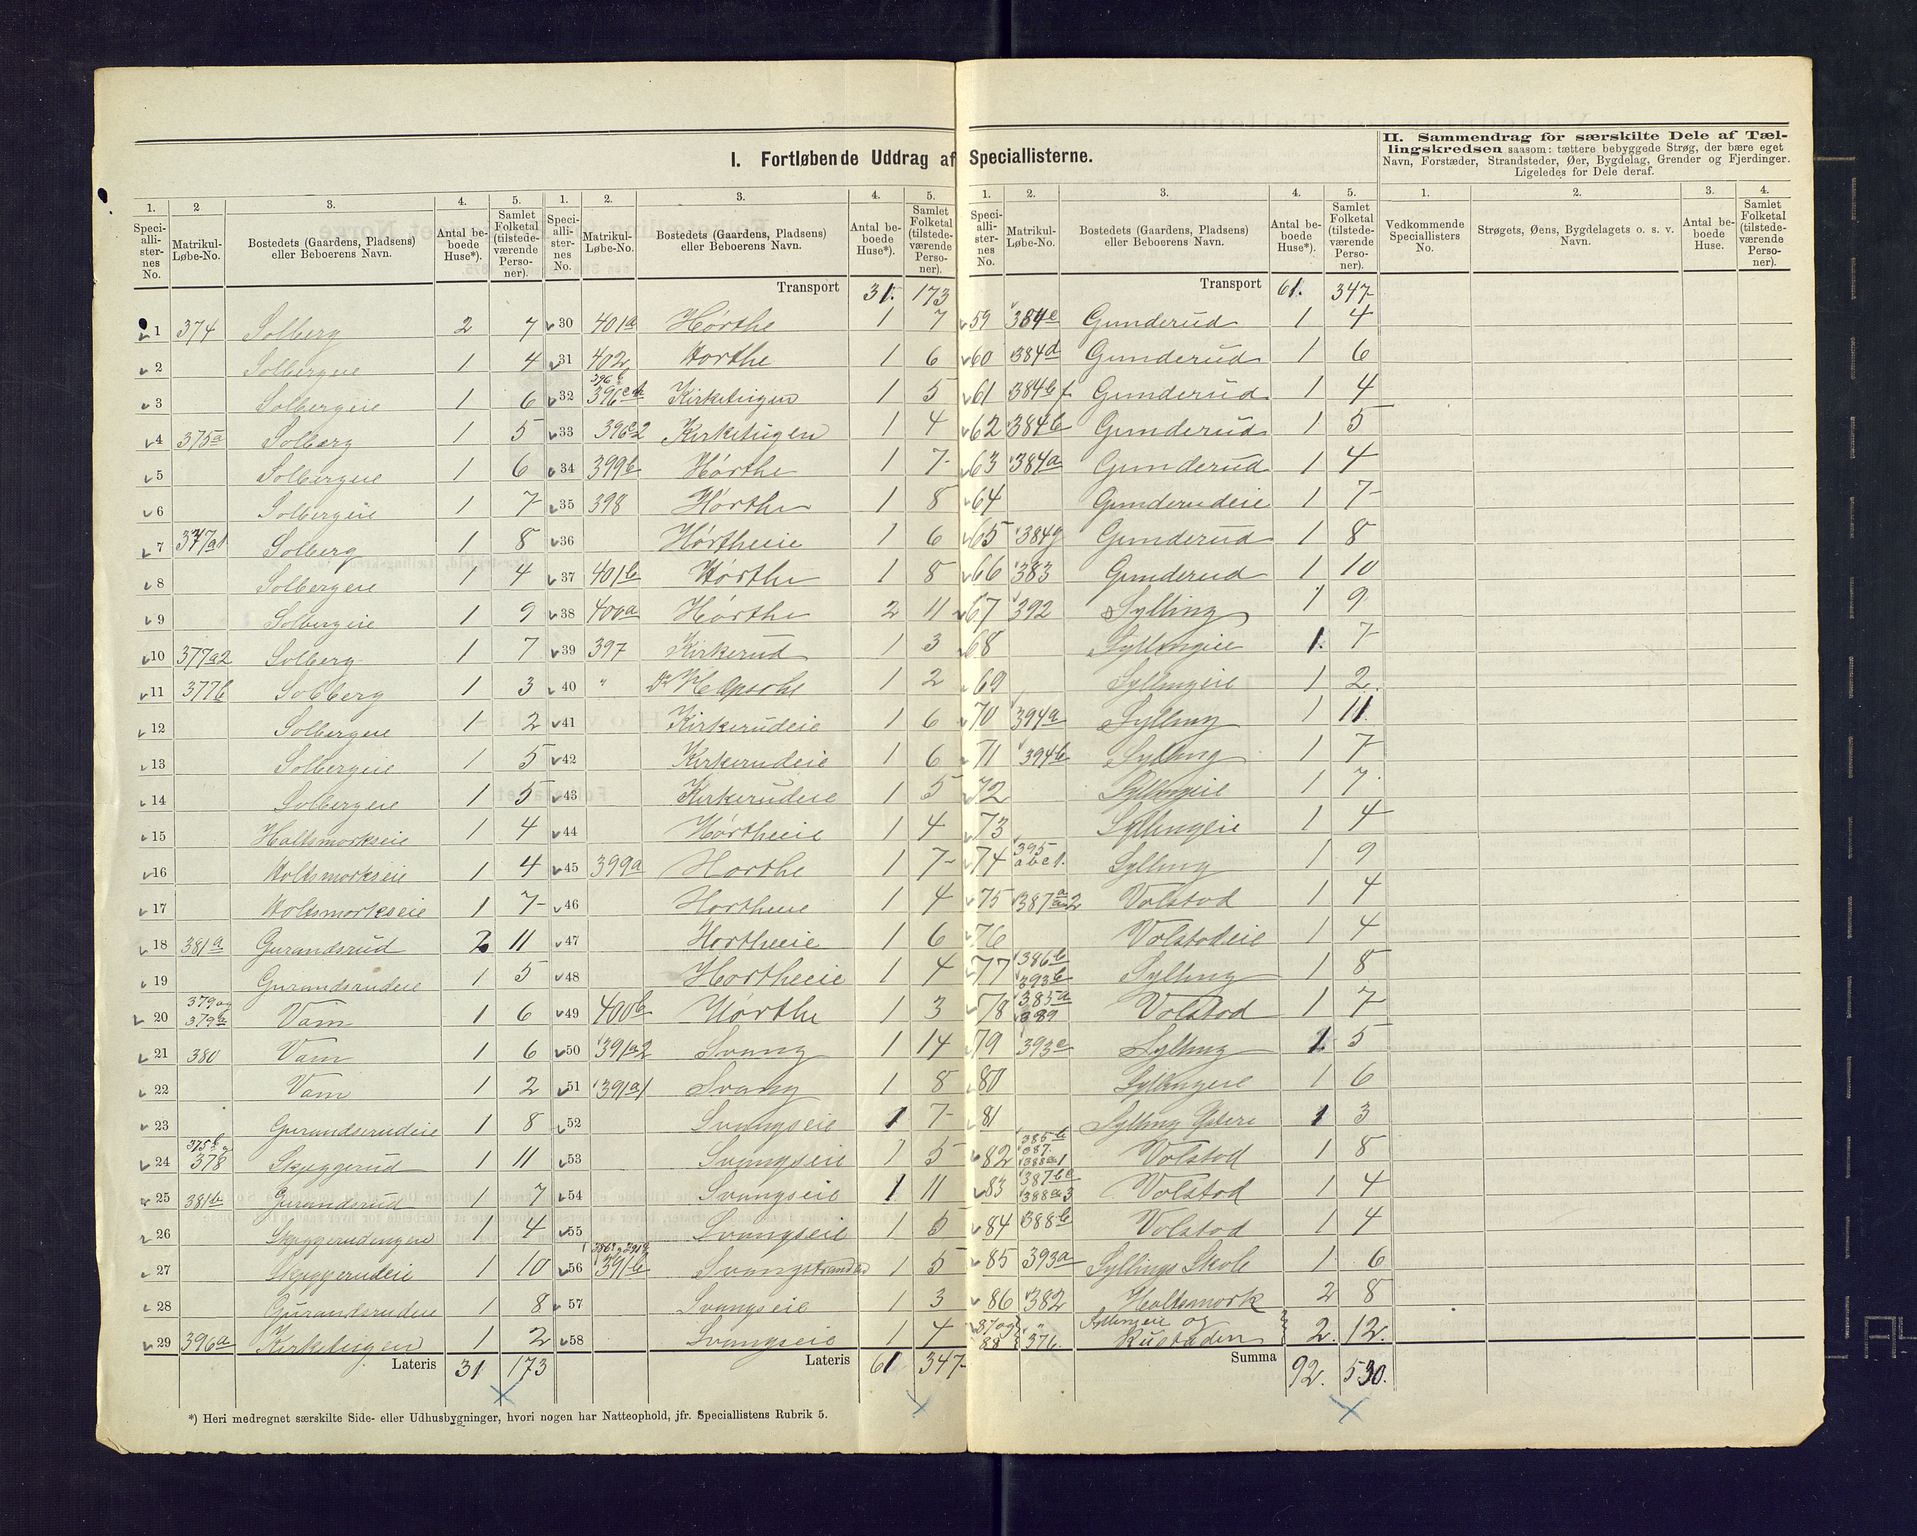 I. Fortløbende Uddrag af Speciallisterne.
II. Sammendrag for særskilte Dele af Tællingskredsen saasom: tættere bebyggede Strøg, der bære eget
Navn, Forstæder, Strandsteder, Øer, Bygdelag, Grender og Fjerdinger.
Ligeledes for Dele deraf.
1. 2 3. 4. 5.
Speciallisternes No. Matrikul-Løbe-No. Bostedets (Gaardens, Pladsens) eller Beboerens Navn. Antal beboede Huse*). Samlet Folketal (tilstedeværende Personer).
1 374 Solberg 2 7
2 Solbergeie 1 4
3 Solbergeie 1 6
4 375a Solberg 1 5
5 Solbergeie 1 6
6 Solbergeie 1 7
7 377a1 Solberg 1 8
8 Solbergeie 1 4
9 Solbergeie 1 9
10 377a2 Solberg 1 7
11 377b Solberg 1 3
12 Solbergeie 1 2
13 Solbergeie 1 5
14 Solbergeie 1 5
15 Holtsmorkseie 1 4
16 Holtsmorkseie 1 4
17 Holtsmorkseie 1 7
18 381a Gurandsrud 2 11
19 Gurandsrudeie 1 5
20 379 og 379a Vam 1 6
21 380 Vam 1 6
22 Vam 1 2
23 Gurandsrudeie 1 8
24 375b og 378 Skjeggerud 1 11
25 381b Gurandsrud 1 7
26 Skjeggerudengen 1 4
27 Skjeggerudeie 1 10
28 Gurandsrudeie 1 8
29 396a Kirketeigen 1 2
Lateris 31 173
1. 2. 3. 4. 5.
Speciallisternes No. Matrikul-Løbe-No. Bostedets (Gaardens, Pladsens) eller Beboerens Navn. Antal beboede Huse*). Samlet Folketal (tilstedeværende Personer).
Transport 31. 173
30 401a Hørthe 1 7
31 402 Hørthe 1 6
32 396b 396c1 Kirketeigen 1 5
33 396c2 Kirketeigen 1 4
34 399b Hørthe 1 7
35 398 Hørthe 1 8
36 Hørtheeie 1 6
37 401b Hørthe 1 8
38 400a Hørthe 2 11
39 397 Kirkerud 1 3
40 " 1 2
41 Kirkerudeie 1 6
42 Kirkerudeie 1 6
43 Kirkerudeie 1 5
44 Hørtheeie 1 4
45 399a Horthe 1 7
46 Hortheeie 1 4
47 Hortheeie 1 6
48 Hortheeie 1 4
49 400b Hørthe 1 3
50 391a2 Svang 1 14
51 391a1 Svang 1 8
52 Svangseie 1 7
53 Svangseie 1 5
54 Svangseie 1 11
55 Svangseie 1 5
56 391b Svangstranden 1 5
57 Svangseie 1 3
58 Svangseie 1 4
Lateris 61 347
1. 2. 3. 4. 5.
Speciallisternes No. Matrikul-Løbe-No. Bostedets (Gaardens, Pladsens) eller Beboerens Navn. Antal beboede Huse*). Samlet Folketal (tilstedeværende Personer).
Transport 61. 347
59 384e Gunderud 1 4
60 384d Gunderud 1 6
61 384bf Gunderud 1 4
62 384b Gunderud 1 5
63 384a Gunderud 1 4
64 Gunderudeie 1 7
65 384g Gunderud 1 8
66 383 Gunderud 1 10
67 392 Sylling 1 9
68 Syllingeie 1. 7
69 Syllingeie 1 2
70 394a Sylling 1 11
71 394b Sylling 1 7
72 Syllingeie 1 7
73 Syllingeie 1 4
74 395 abc1. Sylling 1 9
75 387a2 Volstod 1 4
76 Volstodeie 1 4
77 386b 393b Sylling 1 8
78 385a 389 Volstod 1 7
79 393c Sylling 1 5
80 Syllingeie 1 6
81 Sylling 1 3
82 385b 387. 388a1 Volstod 1 8
83 387bc 388a3 Volstod 1 4
84 388b Volstod 1 4
85 393a Syllings Skole 1 6
86 382 Holtsmork 2 8
87 og 88 " 376. og Rustaden 2. 12.
Summa 92. 530.
1. 2. 3. 4.
Vedkommende Speciallisters No. Strøgets, Øens, Bygdelagets o. s. v. Navn. Antal beboede Huse. Samlet Folketal (tilstedeværende Personer).
*) Heri medregnet særskilte Side- eller Udhusbygninger, hvori nogen har Natteophold, jfr. Speciallistens Rubrik 5.